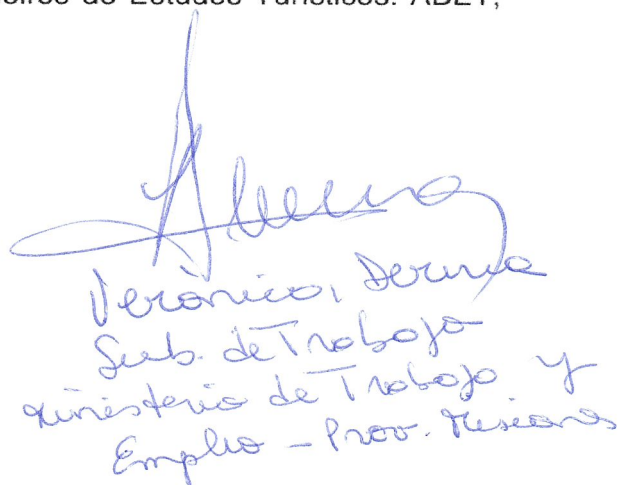 de Estudos Turísticos. ABET,
Verónica, Derma
Sub. de Trabajo
Ministerio de Trabajo y
Empleo - Prov. Misiones